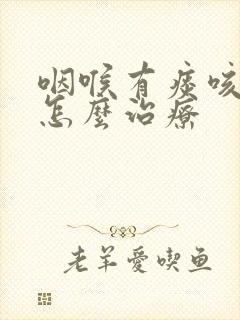 咽喉有痰咳
怎麼治療
老羊愛喫鱼